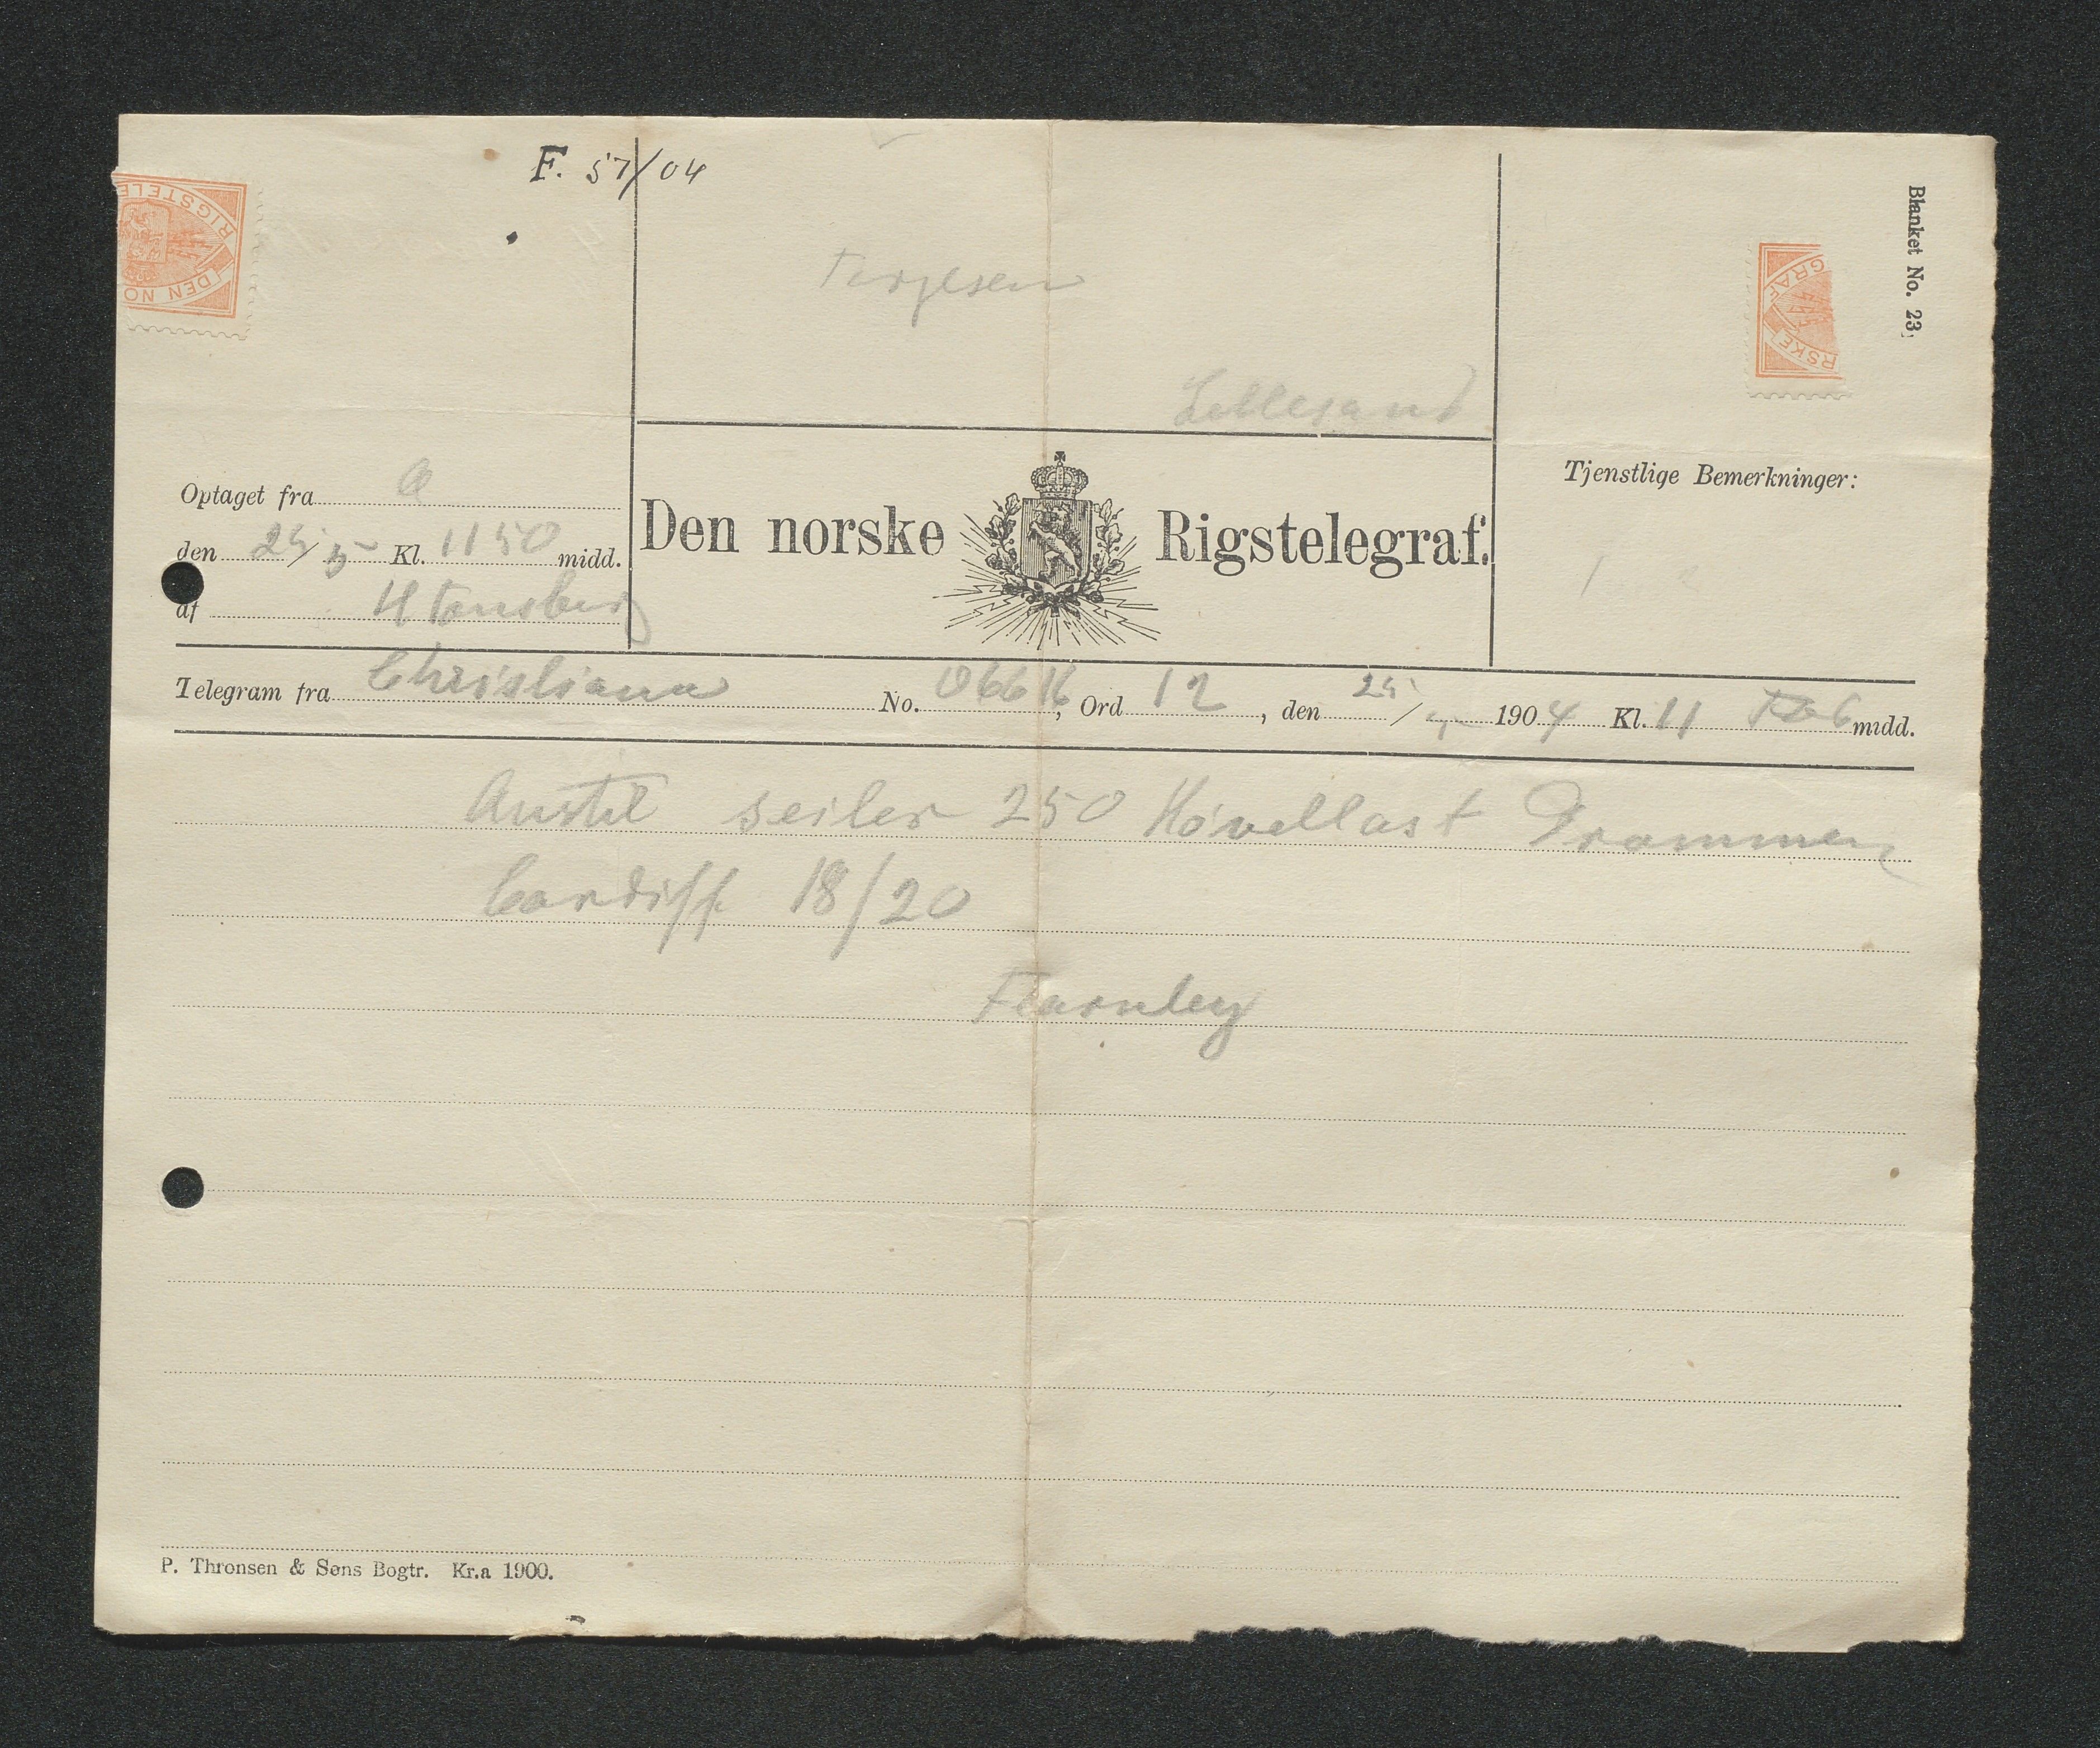 F. 57/04
RIGSTELE
DEN NO
GRAF
RSKE
Blanket No. 23.
Terjesen
Lillesand
Optaget fra
den 25/5 Kl. 11 50 midd.
af H Tønsberg
Den norske Rigstelegraf.
Tjenstlige Bemerkninger:
Telegram fra Christiania No. 06616, Ord 12, den 25/5 1904 Kl. 11 midd.
Anstil seiler 250 Høvellast Drammen
Cardiff 18/20
Fearnley
P. Thronsen & Søns Bogtr. Kr.a 1900.